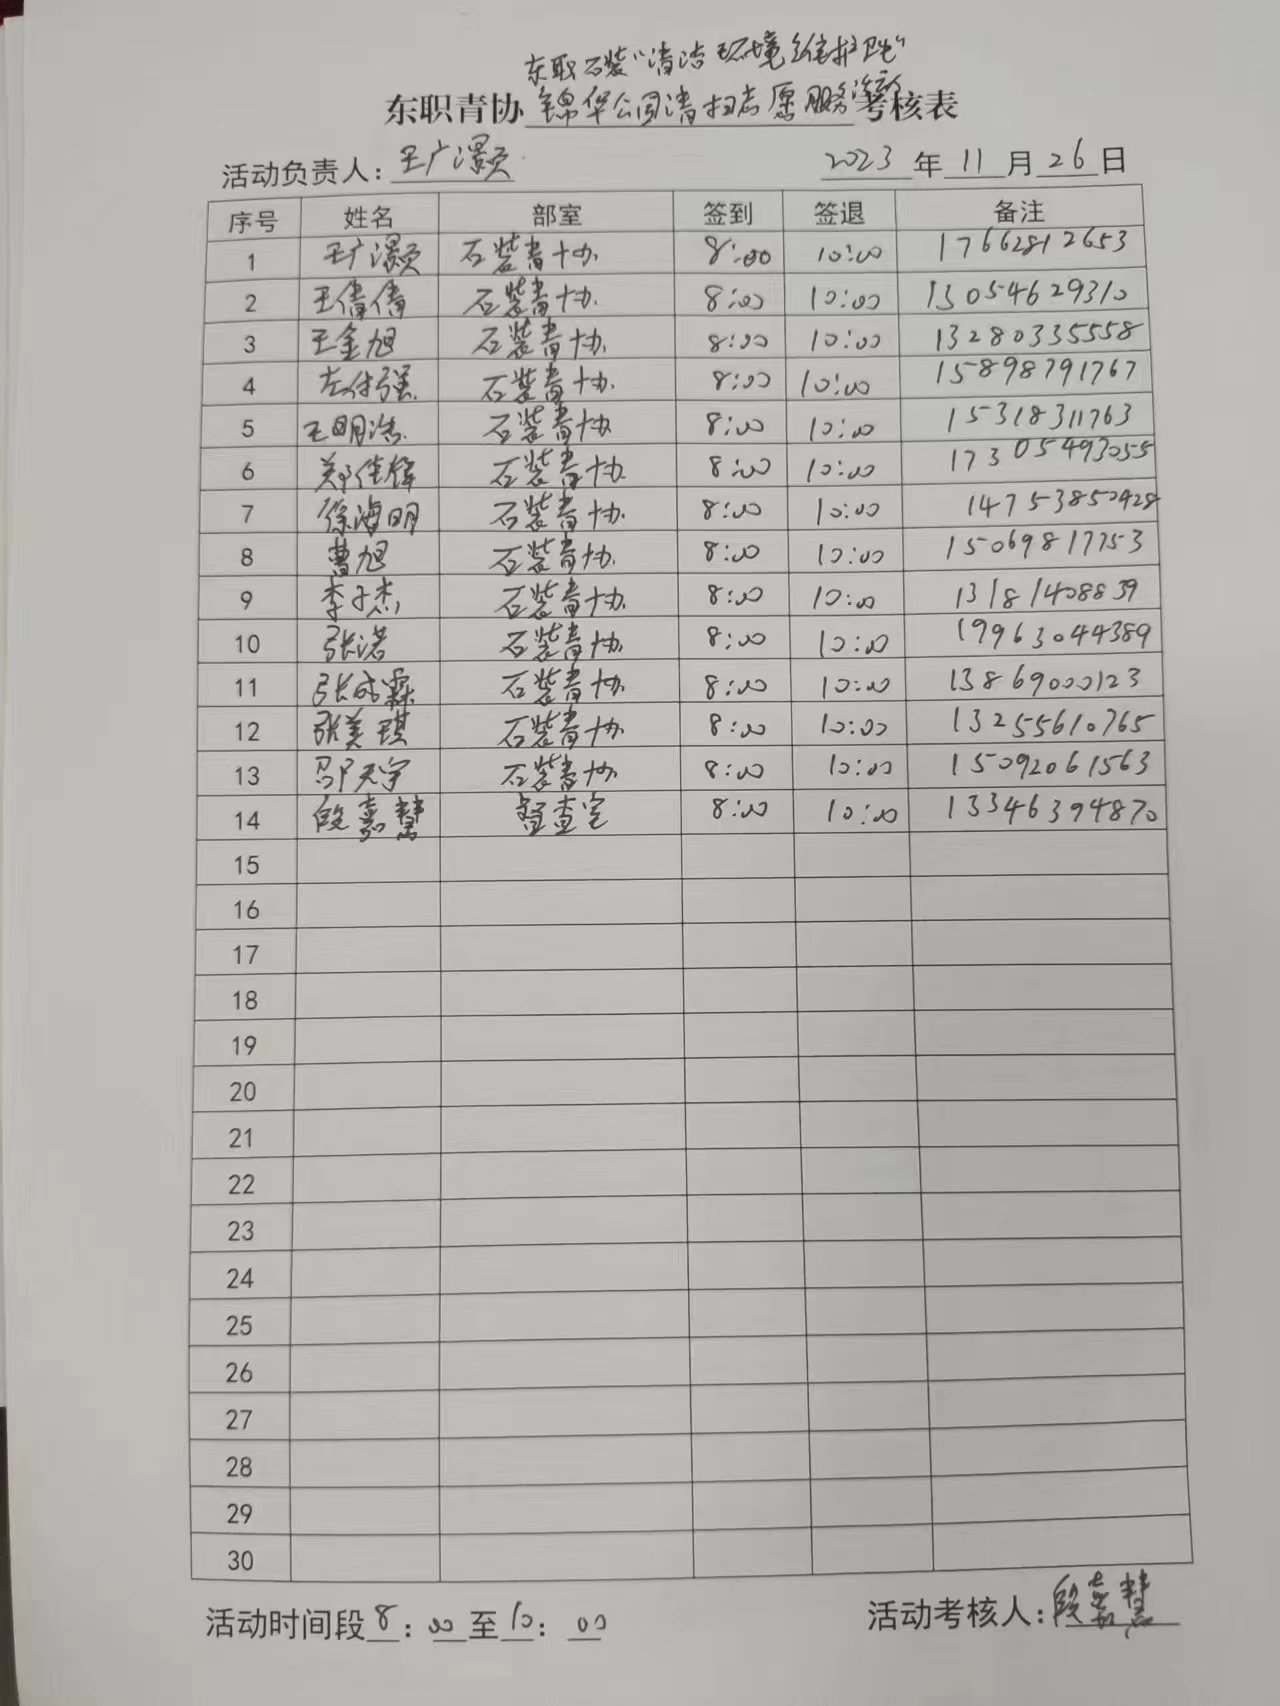 东职石装"清洁环境维护队"
东职青协锦华公司清扫志愿服务活动考核表
活动负责人：王广灏 2023年11月26日
序号 姓名 部室 签到 签退 备注
1 王广灏 石装青协 8:00 10:00 17662812653
2 王倩倩 石装青协 8:00 10:00 13054629310
3 王金旭 石装青协 8:00 10:00 13280335558
4 左传强 石装青协 8:00 10:00 15898791767
5 王明浩 石装青协 8:00 10:00 15318311763
6 郑佳锋 石装青协 8:00 10:00 17305493055
7 徐海明 石装青协 8:00 10:00 14753850428
8 曹旭 石装青协 8:00 10:00 15069817753
9 李子杰 石装青协 8:00 10:00 13181408839
10 张诺 石装青协 8:00 10:00 19963044389
11 张成霖 石装青协 8:00 10:00 13869000123
12 张美琪 石装青协 8:00 10:00 13255610765
13 邵天宇 石装青协 8:00 10:00 15092061563
14 段嘉慧 督查室 8:00 10:00 13346394870
15
16
17
18
19
20
21
22
23
24
25
26
27
28
29
30
活动时间段8：00至10：00 活动考核人：段嘉慧